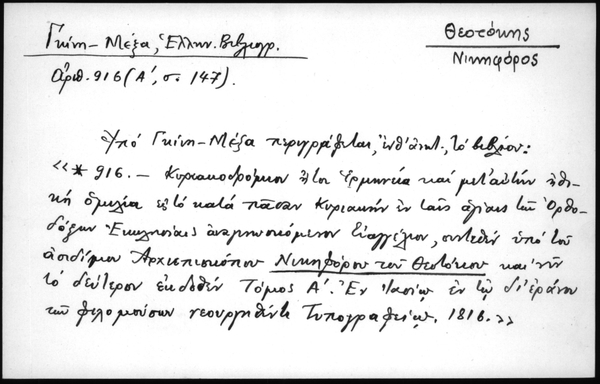 Γκίνη-Μέξα, Ἑλλην. Βιβλιογρ.
ἀριθ. 916 (Α´, σ. 147).
Θεοτόκης
Νικηφόρος
Ὑπό Γκίνη-Μέξα περιγράφεται, ἐνθ' ἀνωτ., τό βιβλίον:
«* 916. – Κυριακοδρόμιον ἤτοι Ἑρμηνεία καί μετ' αὐτήν ἠθι-
κή ὁμιλία εἰς τό κατά πᾶσαν Κυριακήν ἐν ταῖς ἁγίαις τῶν Ὀρθο-
δόξων Ἐκκλησίαις ἀναγινωσκόμενον Εὐαγγέλιον, συντεθέν ὑπό τοῦ
ἀοιδίμου Ἀρχιεπισκόπου Νικηφόρου τοῦ Θεοτόκου καί νῦν
τό δεύτερον ἐκδοθέν Τόμος Α´. Ἐν Ἰασίῳ ἐν τῷ δι' ἐράνου
τῶν φιλομούσων νεουργηθέντι Τυπογραφείῳ. 1816.»